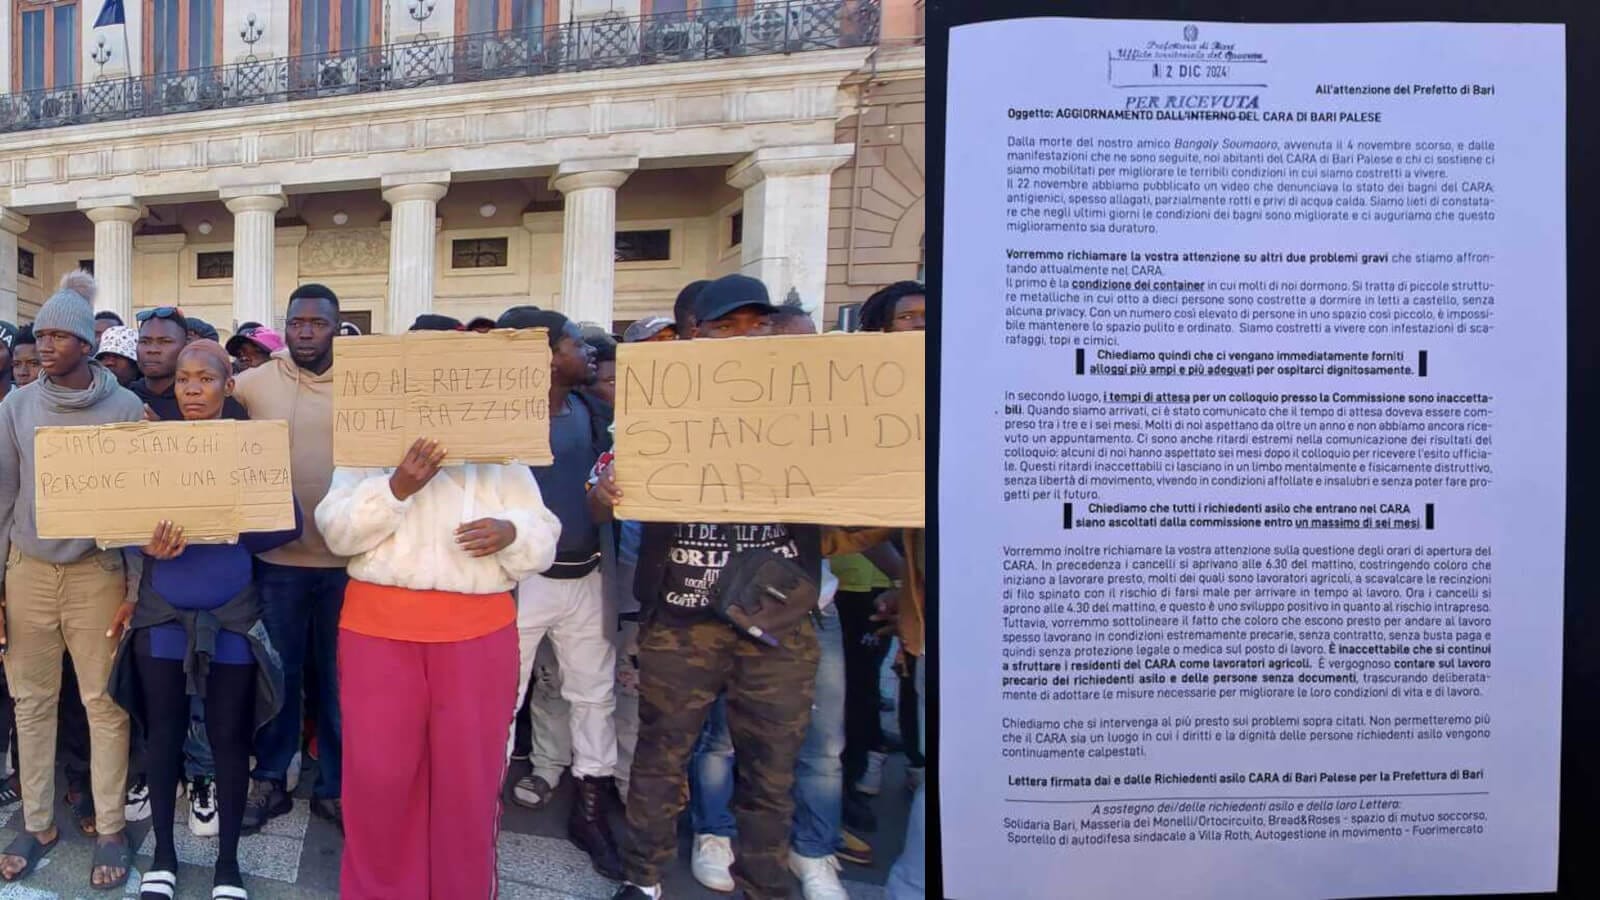 SIAMO STANGHI 10
PERSONE IN UNA STANZA
NO AL RAZZISMO
NO AL RAZZISMO
NOI SIAMO
STANCHI DI
CARA
Prefettura di Bari
Ufficio territoriale del Governo
12 DIC 2024
PER RICEVUTA
All'attenzione del Prefetto di Bari
Oggetto: AGGIORNAMENTO DALL'INTERNO DEL CARA DI BARI PALESE
Dalla morte del nostro amico Bangaly Soumaoro, avvenuta il 4 novembre scorso, e dalle
manifestazioni che ne sono seguite, noi abitanti del CARA di Bari Palese e chi ci sostiene ci
siamo mobilitati per migliorare le terribili condizioni in cui siamo costretti a vivere.
Il 22 novembre abbiamo pubblicato un video che denunciava lo stato dei bagni del CARA:
antigienici, spesso allagati, parzialmente rotti e privi di acqua calda. Siamo lieti di constata-
re che negli ultimi giorni le condizioni dei bagni sono migliorate e ci auguriamo che questo
miglioramento sia duraturo.
Vorremmo richiamare la vostra attenzione su altri due problemi gravi che stiamo affron-
tando attualmente nel CARA.
Il primo è la condizione dei container in cui molti di noi dormono. Si tratta di piccole struttu-
re metalliche in cui otto a dieci persone sono costrette a dormire in letti a castello, senza
alcuna privacy. Con un numero così elevato di persone in uno spazio così piccolo, è impossi-
bile mantenere lo spazio pulito e ordinato. Siamo costretti a vivere con infestazioni di sca-
rafaggi, topi e cimici.
Chiediamo quindi che ci vengano immediatamente forniti
alloggi più ampi e più adeguati per ospitarci dignitosamente.
In secondo luogo, i tempi di attesa per un colloquio presso la Commissione sono inaccetta-
bili. Quando siamo arrivati, ci è stato comunicato che il tempo di attesa doveva essere com-
preso tra i tre e i sei mesi. Molti di noi aspettano da oltre un anno e non abbiamo ancora rice-
vuto un appuntamento. Ci sono anche ritardi estremi nella comunicazione dei risultati del
colloquio: alcuni di noi hanno aspettato sei mesi dopo il colloquio per ricevere l'esito ufficia-
le. Questi ritardi inaccettabili ci lasciano in un limbo mentalmente e fisicamente distruttivo,
senza libertà di movimento, vivendo in condizioni affollate e insalubri e senza poter fare pro-
getti per il futuro.
Chiediamo che tutti i richiedenti asilo che entrano nel CARA
siano ascoltati dalla commissione entro un massimo di sei mesi.
Vorremmo inoltre richiamare la vostra attenzione sulla questione degli orari di apertura del
CARA. In precedenza i cancelli si aprivano alle 6.30 del mattino, costringendo coloro che
iniziano a lavorare presto, molti dei quali sono lavoratori agricoli, a scavalcare le recinzioni
di filo spinato con il rischio di farsi male per arrivare in tempo al lavoro. Ora i cancelli si
aprono alle 4.30 del mattino, e questo è uno sviluppo positivo in quanto al rischio intrapreso.
Tuttavia, vorremmo sottolineare il fatto che coloro che escono presto per andare al lavoro
spesso lavorano in condizioni estremamente precarie, senza contratto, senza busta paga e
quindi senza protezione legale o medica sul posto di lavoro. È inaccettabile che si continui
a sfruttare i residenti del CARA come lavoratori agricoli. È vergognoso contare sul lavoro
precario dei richiedenti asilo e delle persone senza documenti, trascurando deliberata-
mente di adottare le misure necessarie per migliorare le loro condizioni di vita e di lavoro.
Chiediamo che si intervenga al più presto sui problemi sopra citati. Non permetteremo più
che il CARA sia un luogo in cui i diritti e la dignità delle persone richiedenti asilo vengono
continuamente calpestati.
Lettera firmata dai e dalle Richiedenti asilo CARA di Bari Palese per la Prefettura di Bari
A sostegno dei/delle richiedenti asilo e della loro Lettera:
Solidaria Bari, Masseria dei Monelli/Ortocircuito, Bread&Roses - spazio di mutuo soccorso,
Sportello di autodifesa sindacale a Villa Roth, Autogestione in movimento - Fuorimercato